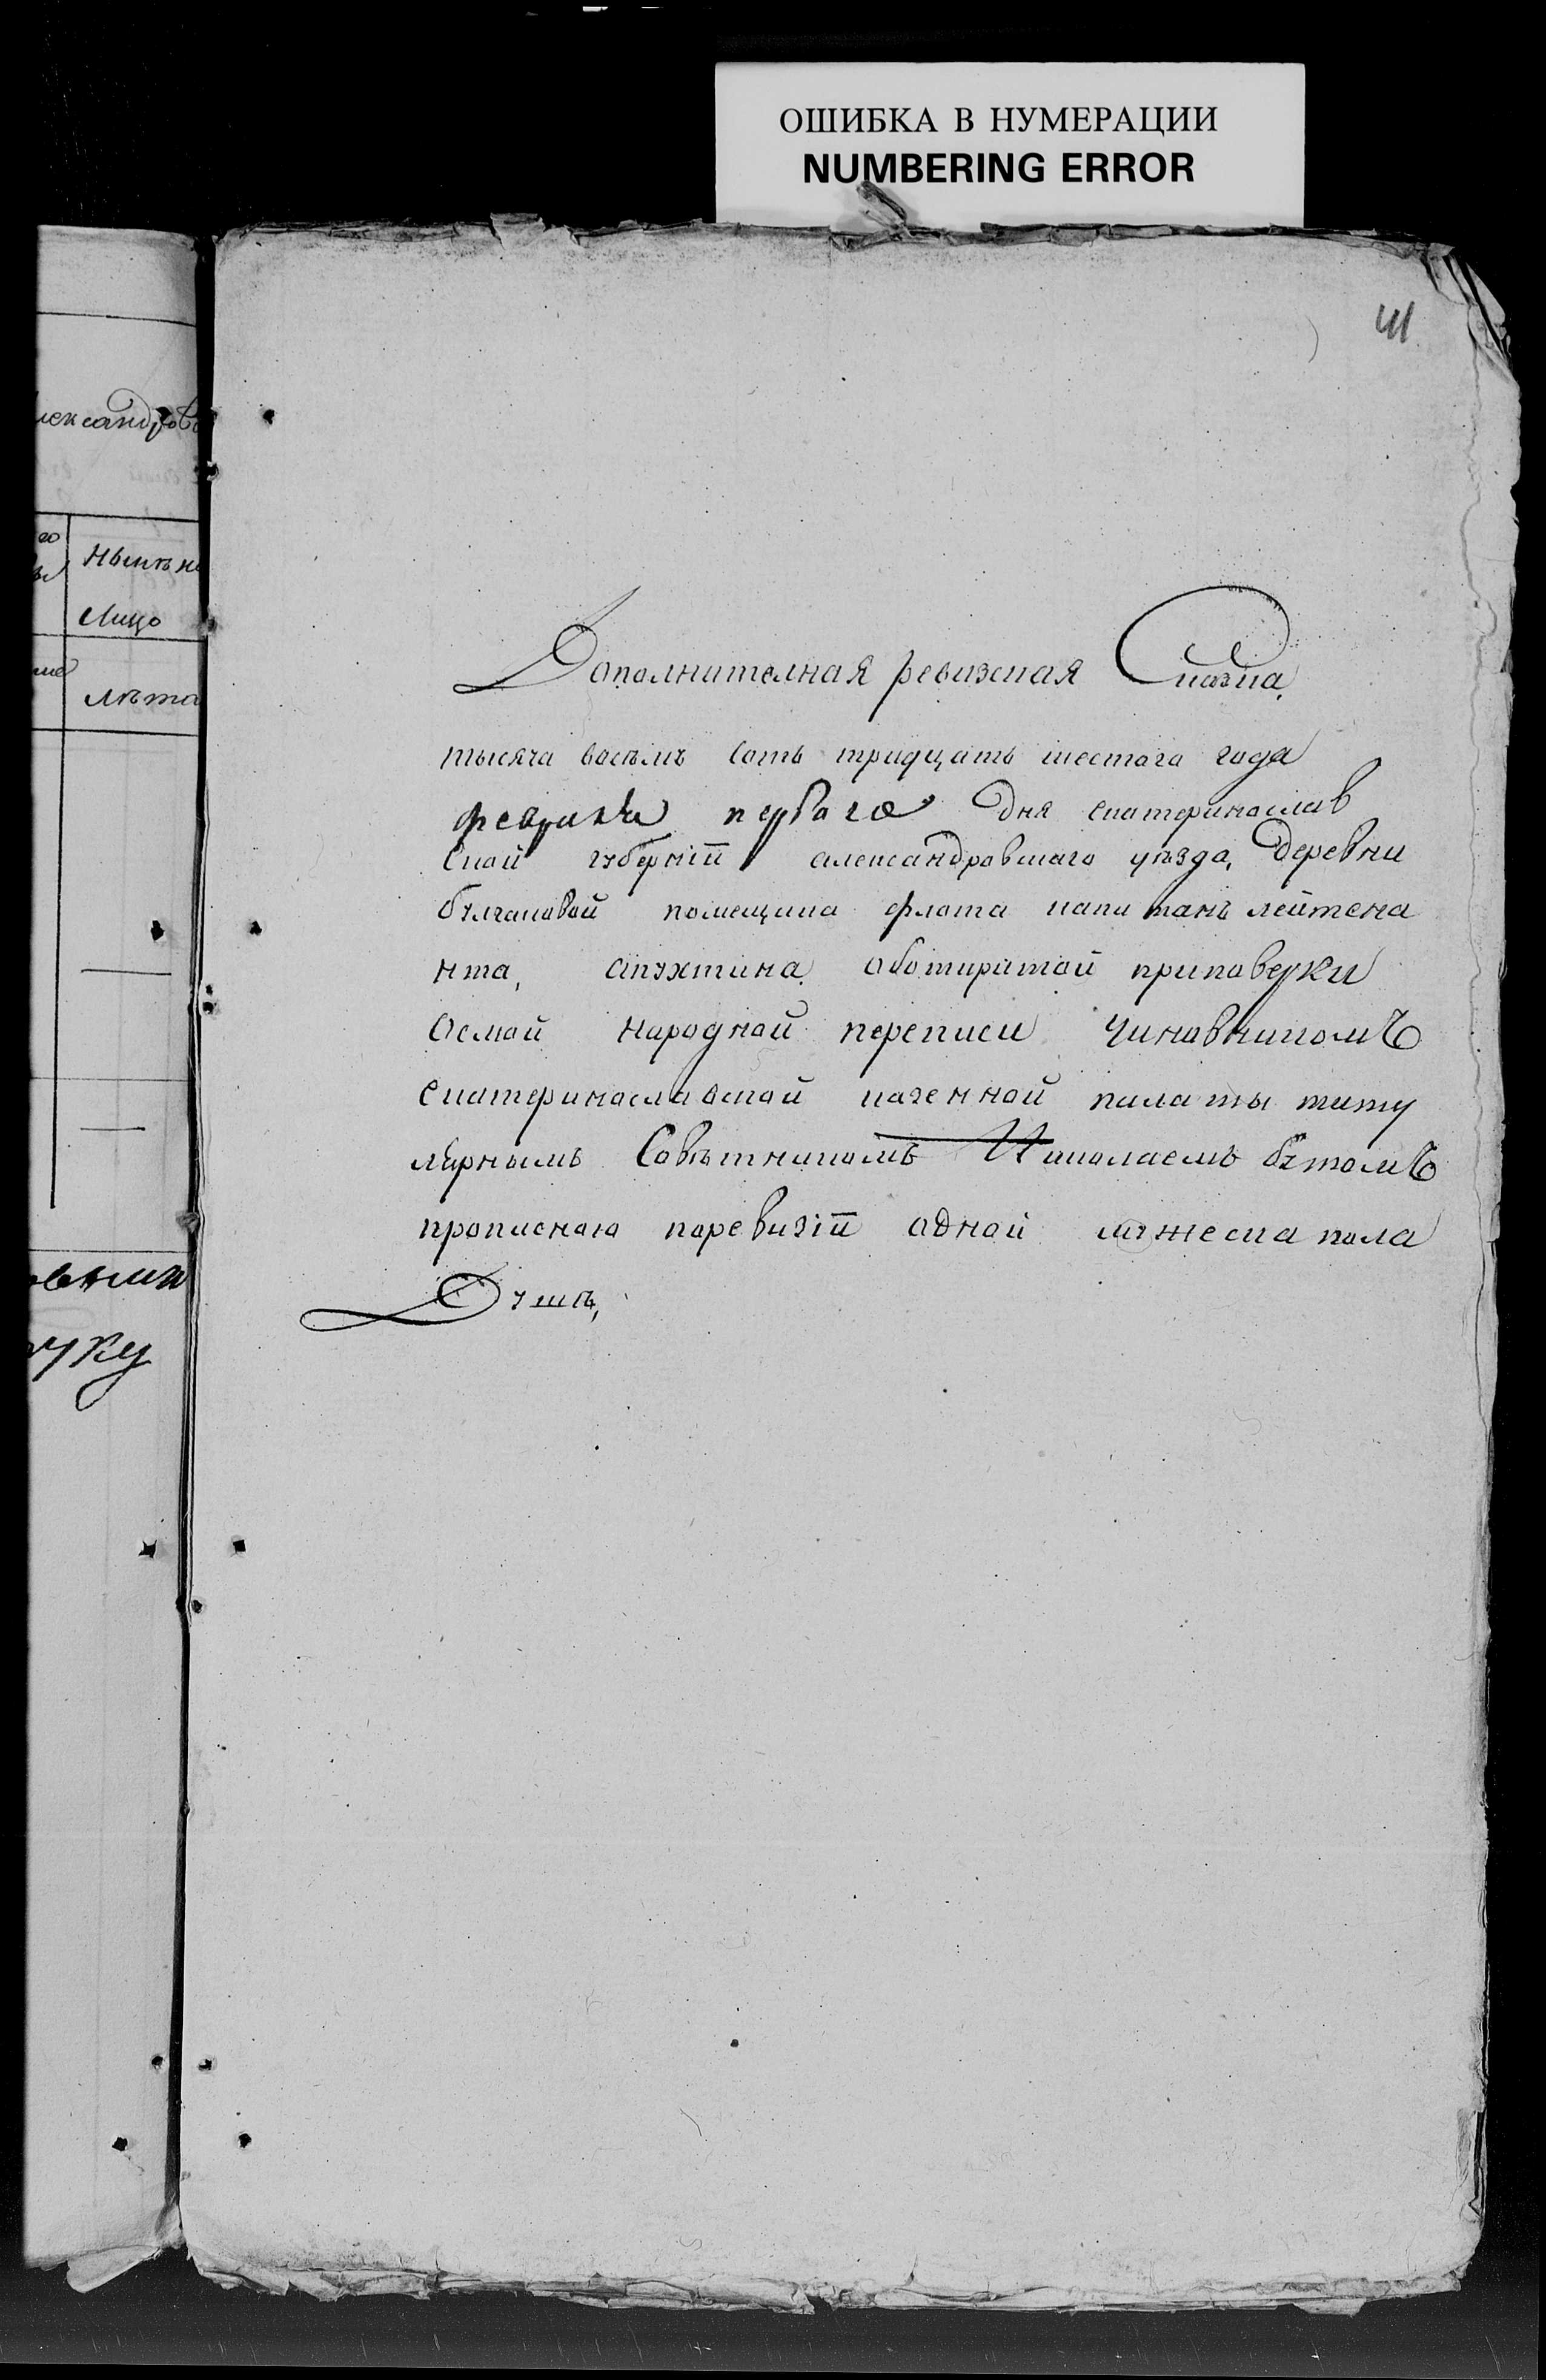 ОШИБКА В НУМЕРАЦИИ
NUMBERING ERROR
41
лександровс
го
нынѣ на
лицо
лѣта
уку
Дополнителная ревизская Сказка,
тысяча восѣмъ сотъ тридцать шестаго года
февраля перваго дня екатеринослав
ской губерніи александровскаго уѣзда, деревни
булгаковой помещика флота капитанъ лейтена
нта, апухтина, оботкрытой приповерки
осмой народной переписи чиновникомъ
екатеринославской казенной палаты титу
лярнымъ Совѣтникомъ Николаемъ бутомъ
прописною поревизіи одной мужеска пола
Душѣ,